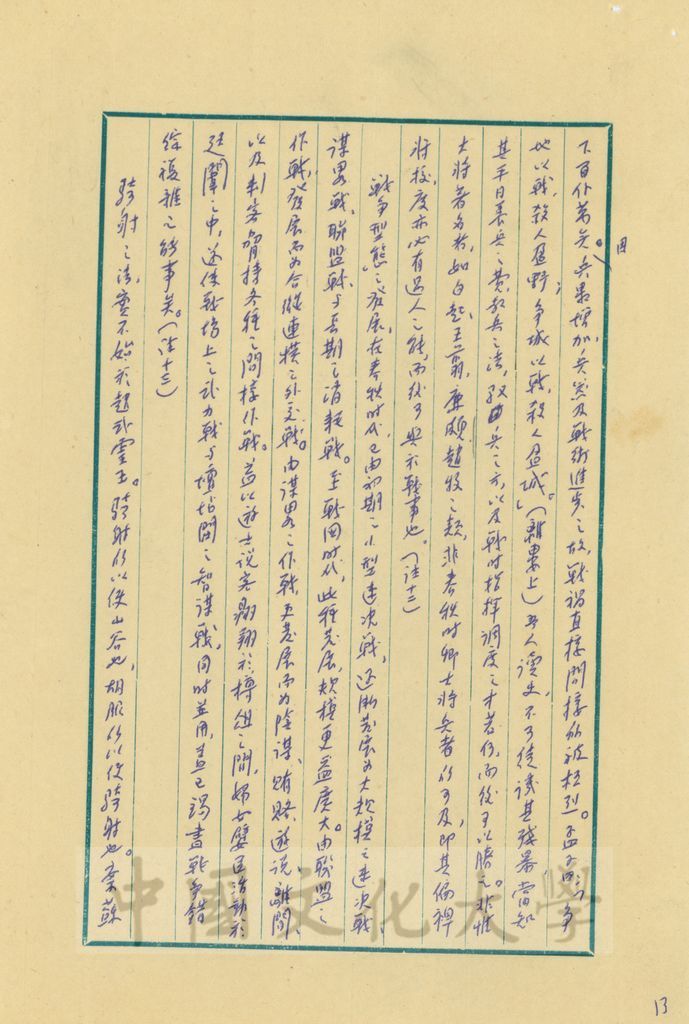 下百什萬矣。兵票增加,兵器及戰術進步之故,戰禍直接間接亦被極烈。孟子曰:「爭
地以戰,殺人盈野;爭城以戰,殺人盈城。」(離婁上)吾人讀史,不可徒譏其殘暴,當知
其平日養兵之費,教兵之法,馭兵之方,以及戰時指揮調度之才若何,而後可以勝之。非惟
大將著名者,如白起、王翦、廉頗、趙牧之類,非春秋時卿士將兵者所可及,即其偏裨
將校,度亦必有過人之能,而後可與於戰事也。(註十二)
戰爭型態之發展,在春秋時代,已由初期之小型速決戰,逐漸發展為大規模之速決戰、
謀略戰、聯盟戰、與長期之消耗戰。至戰國時代,此種發展,規模更益廣大。由聯盟之
作戰,發展而為合縱連橫之外交戰。由謀略之作戰,更發展而為陰謀、賄賂、遊說、離間、
以及刺客脅持各種之間接作戰。益以遊士說客翱翔於樽俎之間,婦女嬖臣活動於
廷闈之中,遂使戰場上之武力戰與壇坫間之智謀戰,同時並用,蓋已竭盡戰爭錯
綜複雜之能事矣。(註十三)
騎射之法,實不始於趙武靈王。騎射所以使山谷也,胡服所以使騎射也。秦蘇
中國文化大學
13